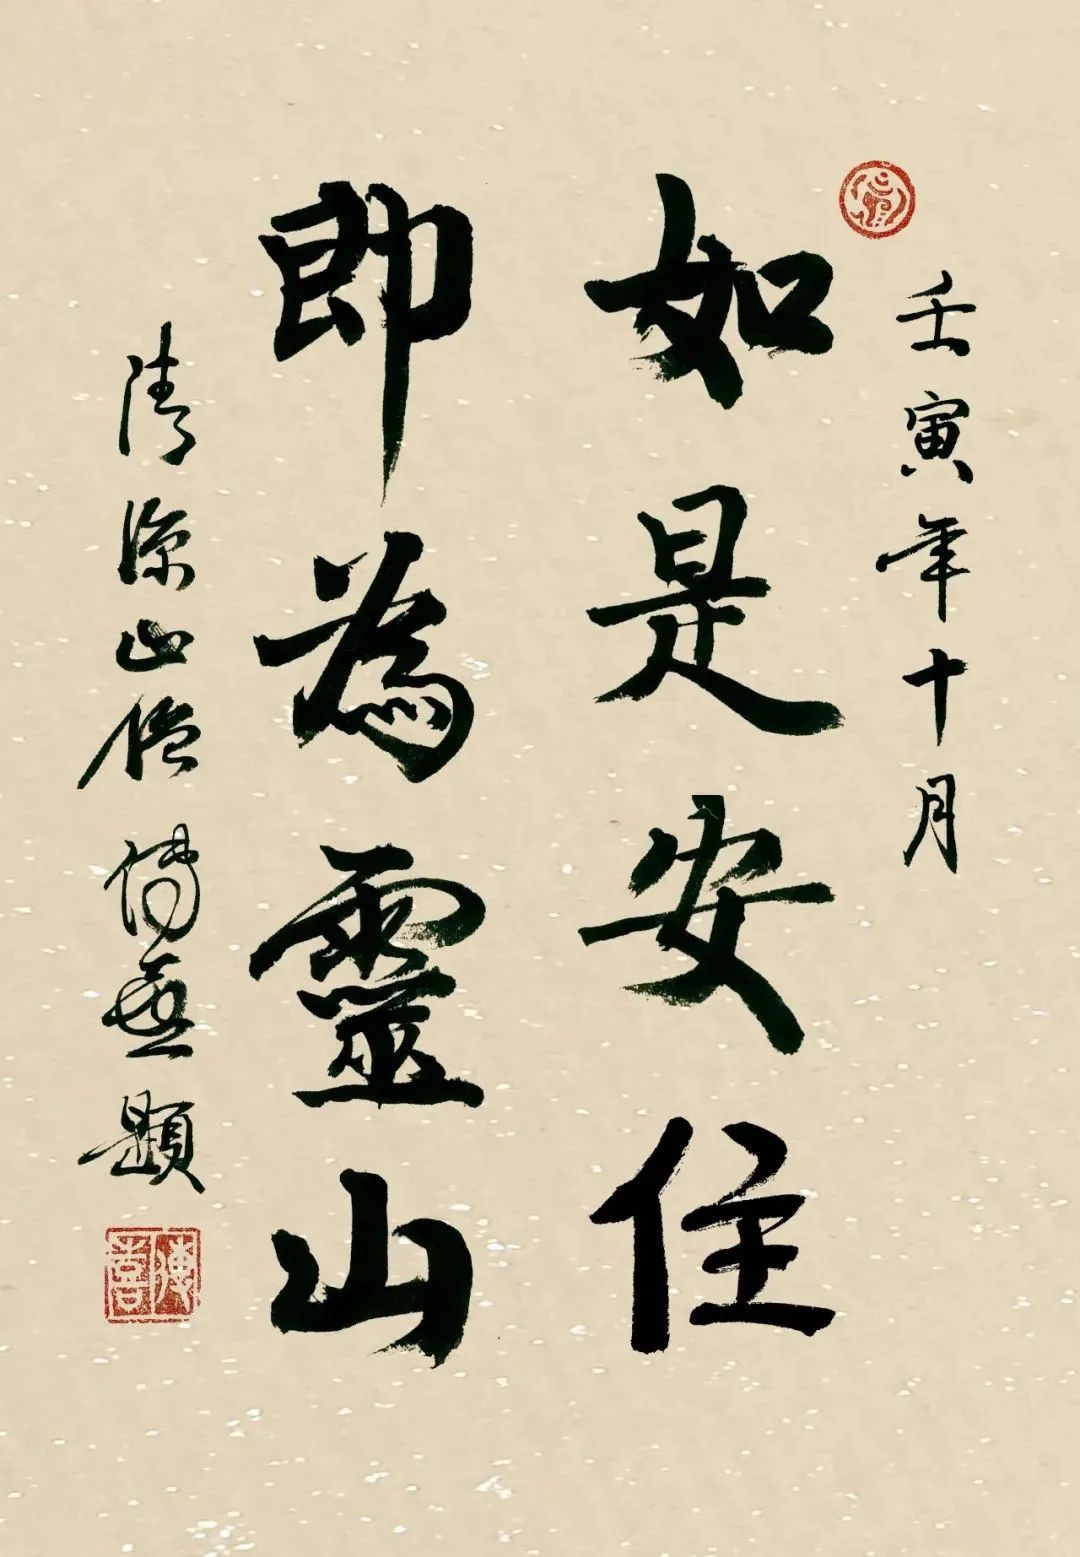 壬寅年十月
如是安住
即為靈山
清凉山僧傳喜題
傳喜